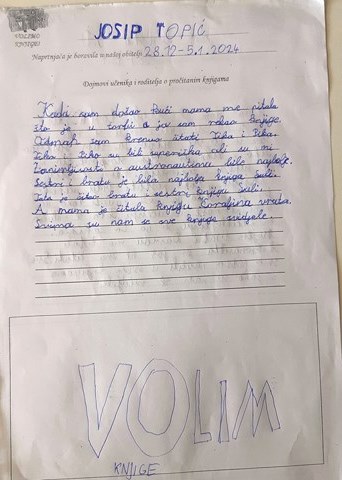 VOLIMO
KNJIGE!
JOSIP TOPIĆ
Naprtnjača je boravila u našoj obitelji 28.12-5.1.2024
Dojmovi učenika i roditelja o pročitanim knjigama
Kada sam došao kući mama me pitala
što je u torbi a ja sam rekao knjige.
Odmah sam krenuo čitati Tika i Taka.
Tika i Taka su bili super
Zanimljivosti o austronautima bile najbolje.
Sestri i bratu je bila najbolja knjiga Šuli.
Tata je čitao bratu i sestri knjigu Šuli.
A mama je čitala knjigu vrata.
Svima su nam se sve knjige svidjele.
VOLIM
KNJIGE